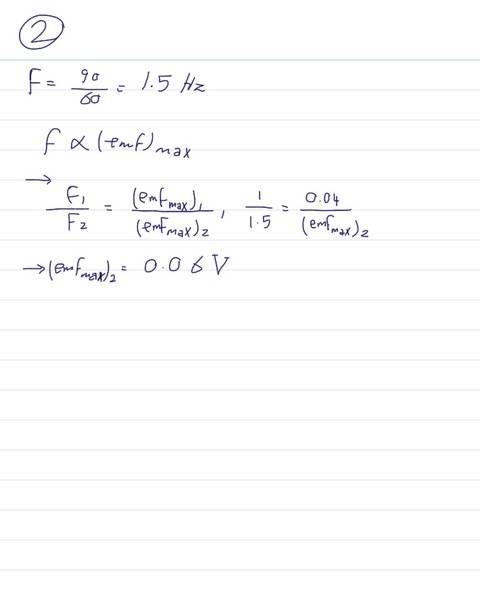 2
F = 90/60 = 1.5 Hz
f ∝ (emf)max
→ F1/F2 = (emfmax)1/(emfmax)2 , 1/1.5 = 0.04/(emfmax)2
→ (emfmax)2 = 0.06 V